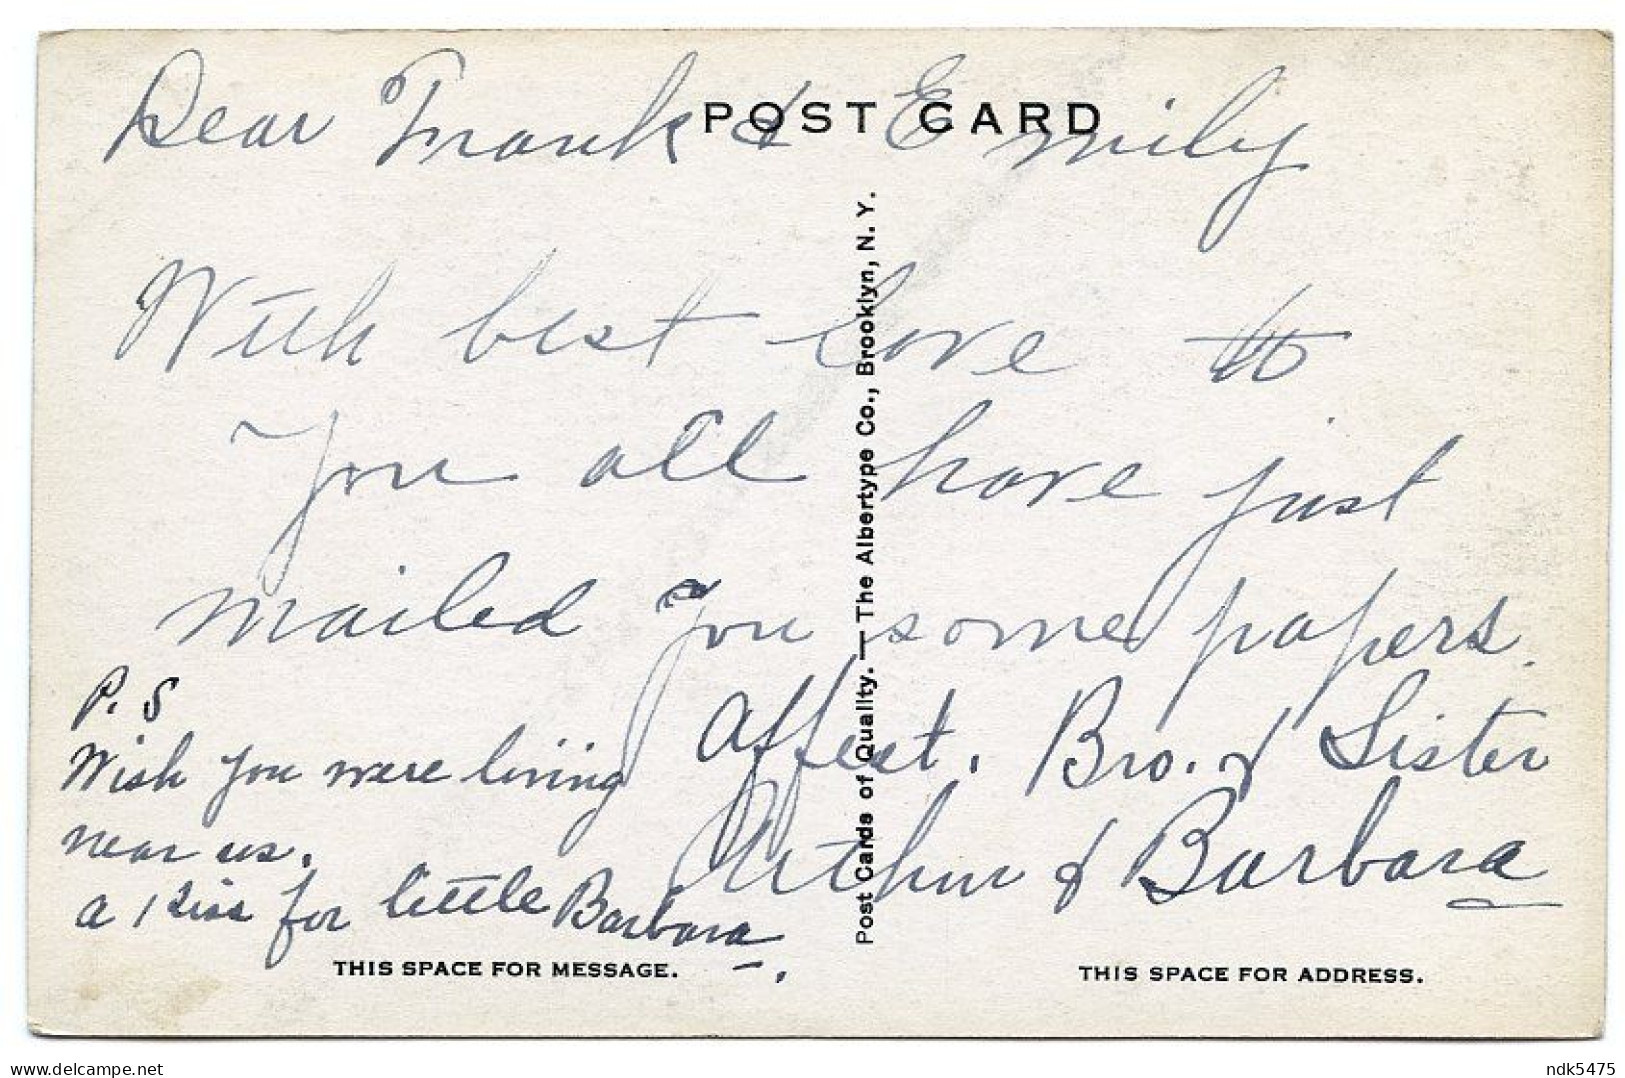 POST CARD
Dear Frank & Emily
With best love to
You all have just
mailed you some papers.
Affect. Bro. & Sister
Arthur & Barbara
P.S
Wish you were living
near us.
a Kiss for little Barbara.
Post Cards of Quality. — The Albertype Co., Brooklyn, N. Y.
THIS SPACE FOR MESSAGE.
THIS SPACE FOR ADDRESS.
www.delcampe.net
ndk5475